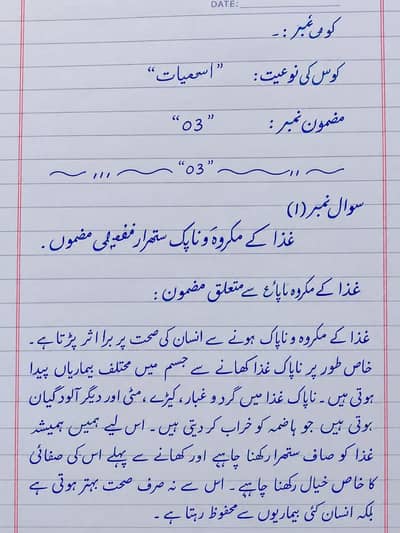 DATE:
کورس نمبر :۔
کورس کی نوعیت: ”اسمیات“
مضمون نمبر : ”03“
”03“
سوال نمبر (۱)
غذا کے مکروہ و ناپاک ستھرار مضموں .
غذا کے مکروہ سے متعلق مضمون :
غذا کے مکروہ و ناپاک ہونے سے انسان کی صحت پر برا اثر پڑتا ہے ۔
خاص طور پر ناپاک غذا کھانے سے جسم میں مختلف بیماریاں پیدا
ہوتی ہیں ۔ ناپاک غذا میں گرد و غبار ، کیڑے ، مٹی اور دیگر آلودگیاں
ہوتی ہیں جو ہاضمہ کو خراب کر دیتی ہیں ۔ اس لیے ہمیں ہمیشہ
غذا کو صاف ستھرا رکھنا چاہیے اور کھانے سے پہلے اس کی صفائی
کا خاص خیال رکھنا چاہیے ۔ اس سے نہ صرف صحت بہتر ہوتی ہے
بلکہ انسان کئی بیماریوں سے محفوظ رہتا ہے ۔